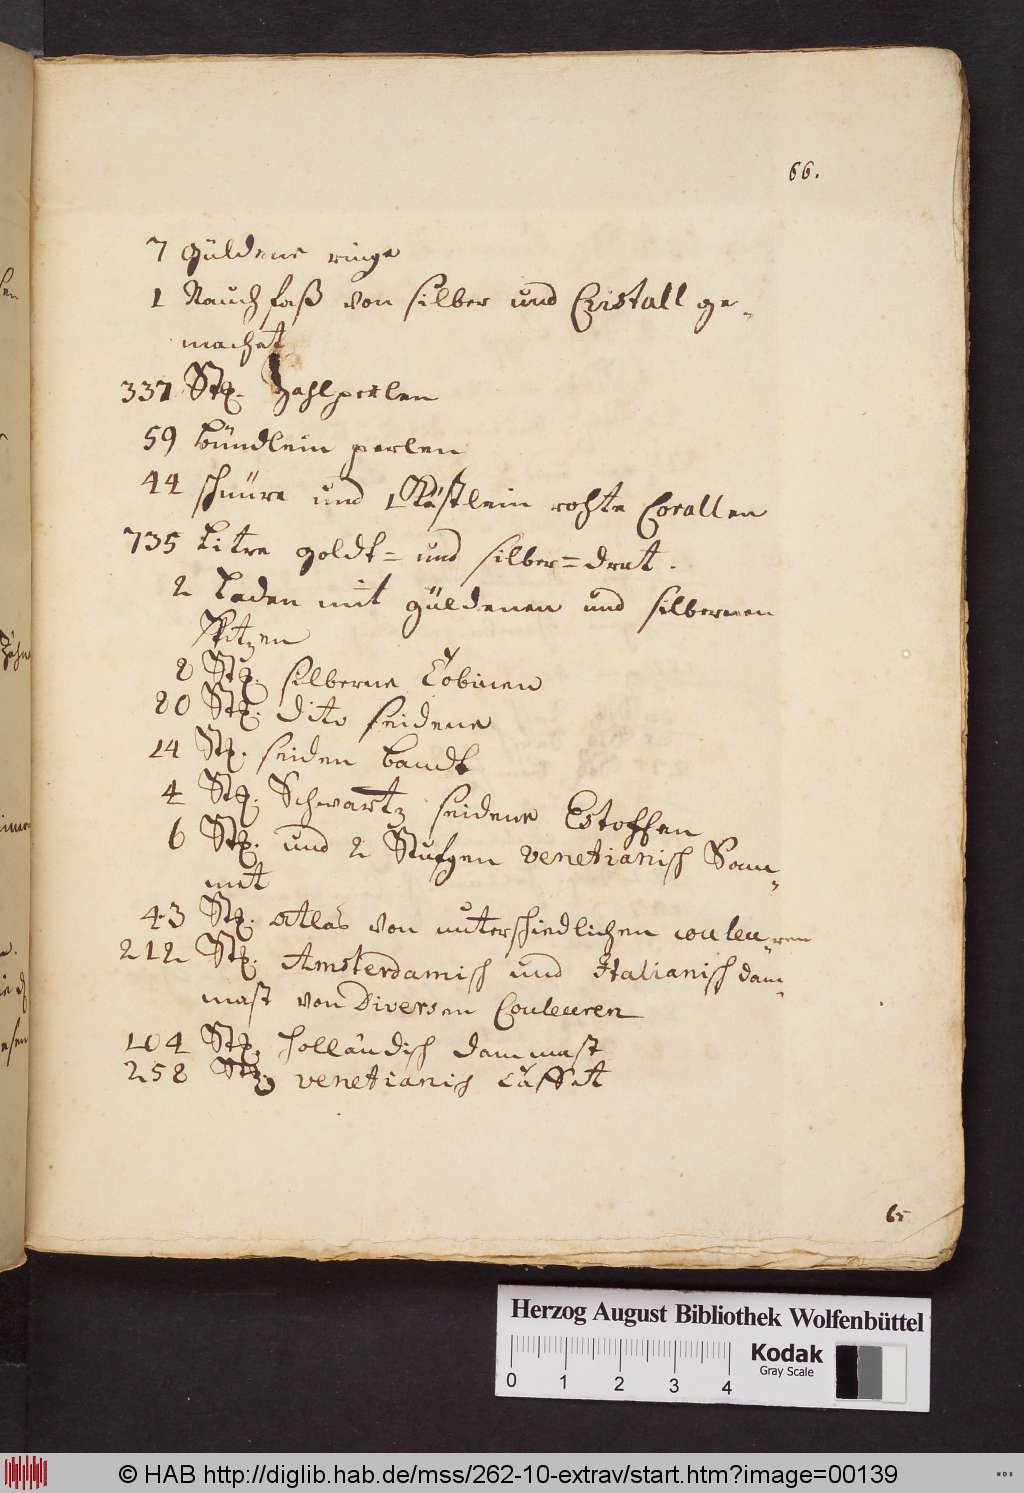 66.
7 güldene ringe
1 Rauchfaß von silber und Cristall ge-
machet
337 Stk. Zahlperlen
59 bündlein perlen
44 schnüre und 1 Kästlein rohte Corallen
735 Litre goldt= und silber=drat.
2 Laden mit güldenen und silbernen
Spitzen
8 Stk. silberne Tobinen
80 Stk. dito seidene
14 Stk. seiden bandt
4 Stk. Schwartz seidene Estoffen
6 Stk. und 2 Stufgen venetianisch Sam-
mit
43 Stk. atlas von unterschiedlichen couleuren
212 Stk. Amsterdamisch und Italianisch dam-
mast von Diversen Couleuren
104 Stk. holländisch dammast
258 Stk. venetianis Taffet
65
Herzog August Bibliothek Wolfenbüttel
0 1 2 3 4
Kodak
Gray Scale
© HAB http://diglib.hab.de/mss/262-10-extrav/start.htm?image=00139